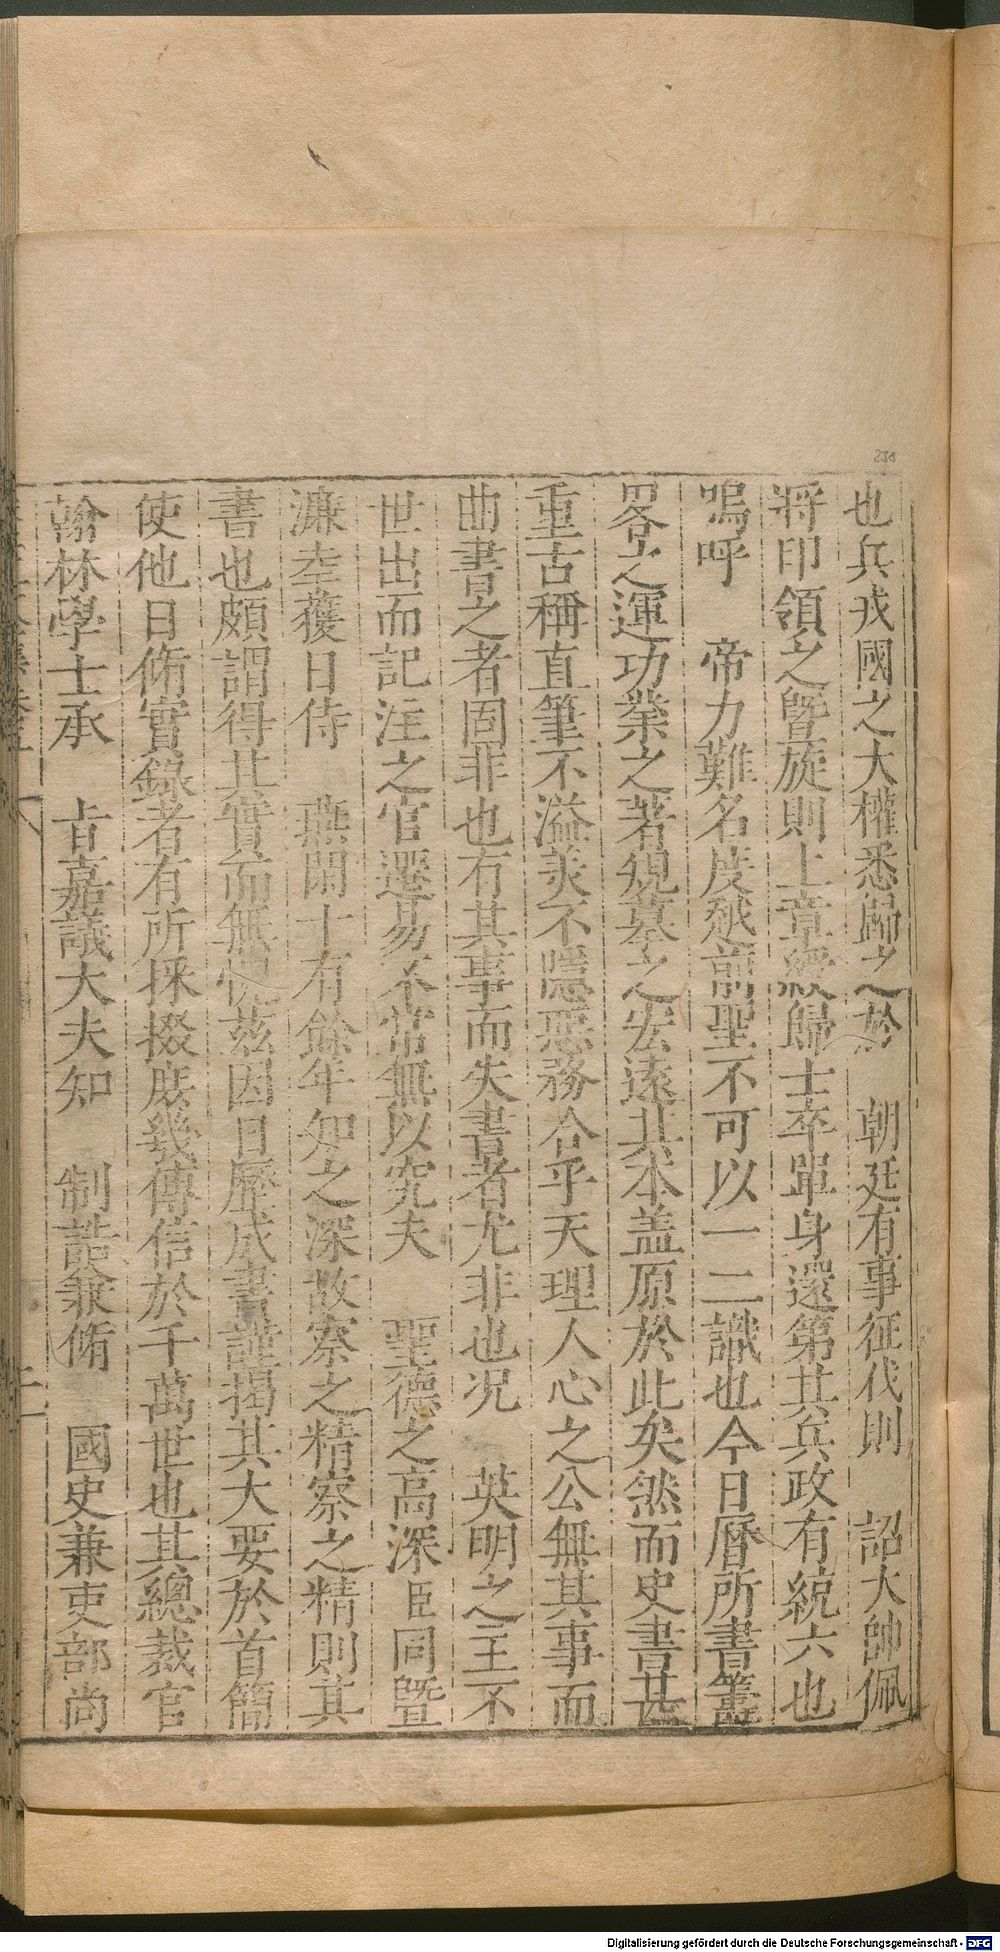 238
也兵戎國之大權悉歸之於　朝廷有事征伐則　詔大帥佩
將印領之曁旋則上章綬歸士卒單身還第其兵政有統六也
嗚呼　帝力難名度越前聖不可以一二識也今日曆所書籌
畧之運功業之著規墓之宏遠其本盖原於此矣然而史書甚
重古稱直筆不溢美不隱惡務合乎天理人心之公無其事而
曲書之者固非也有其事而失書者尤非也况　英明之主不
世出而記注之官遷易不常無以究夫　聖德之高深臣同曁
濂幸獲日侍　燕閒十有餘年知之深故察之精察之精則其
書也頗謂得其實而無愧兹因日曆成書謹揭其大要於首簡
使他日脩實錄者有所採掇庶幾傳信於千萬世也其總裁官
翰林學士承　旨嘉議大夫知　制誥兼脩　國史兼吏部尚
Digitalisierung gefördert durch die Deutsche Forschungsgemeinschaft - DFG